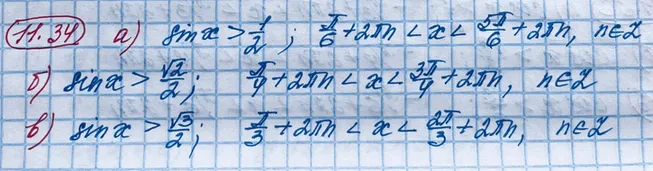 11.34 а) sin x > 1/2; π/6 + 2πn < x < 5π/6 + 2πn, n∈Z
б) sin x > √2/2; π/4 + 2πn < x < 3π/4 + 2πn, n∈Z
в) sin x > √3/2; π/3 + 2πn < x < 2π/3 + 2πn, n∈Z